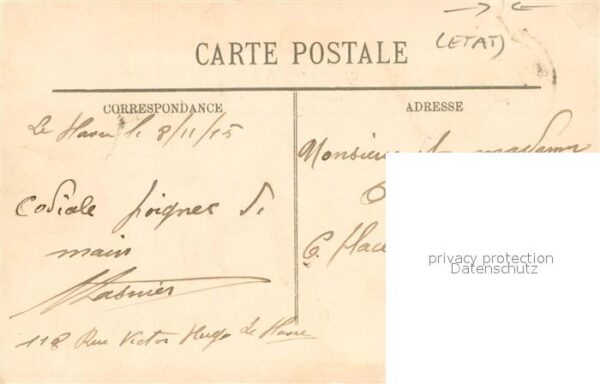 (ETAT)
CARTE POSTALE
CORRESPONDANCE
ADRESSE
Le Havre le 8/11/15
Codiale poignee de
main
118 Rue Victor Hugo Le Havre
Monsieur et madame
6. place
privacy protection
Datenschutz